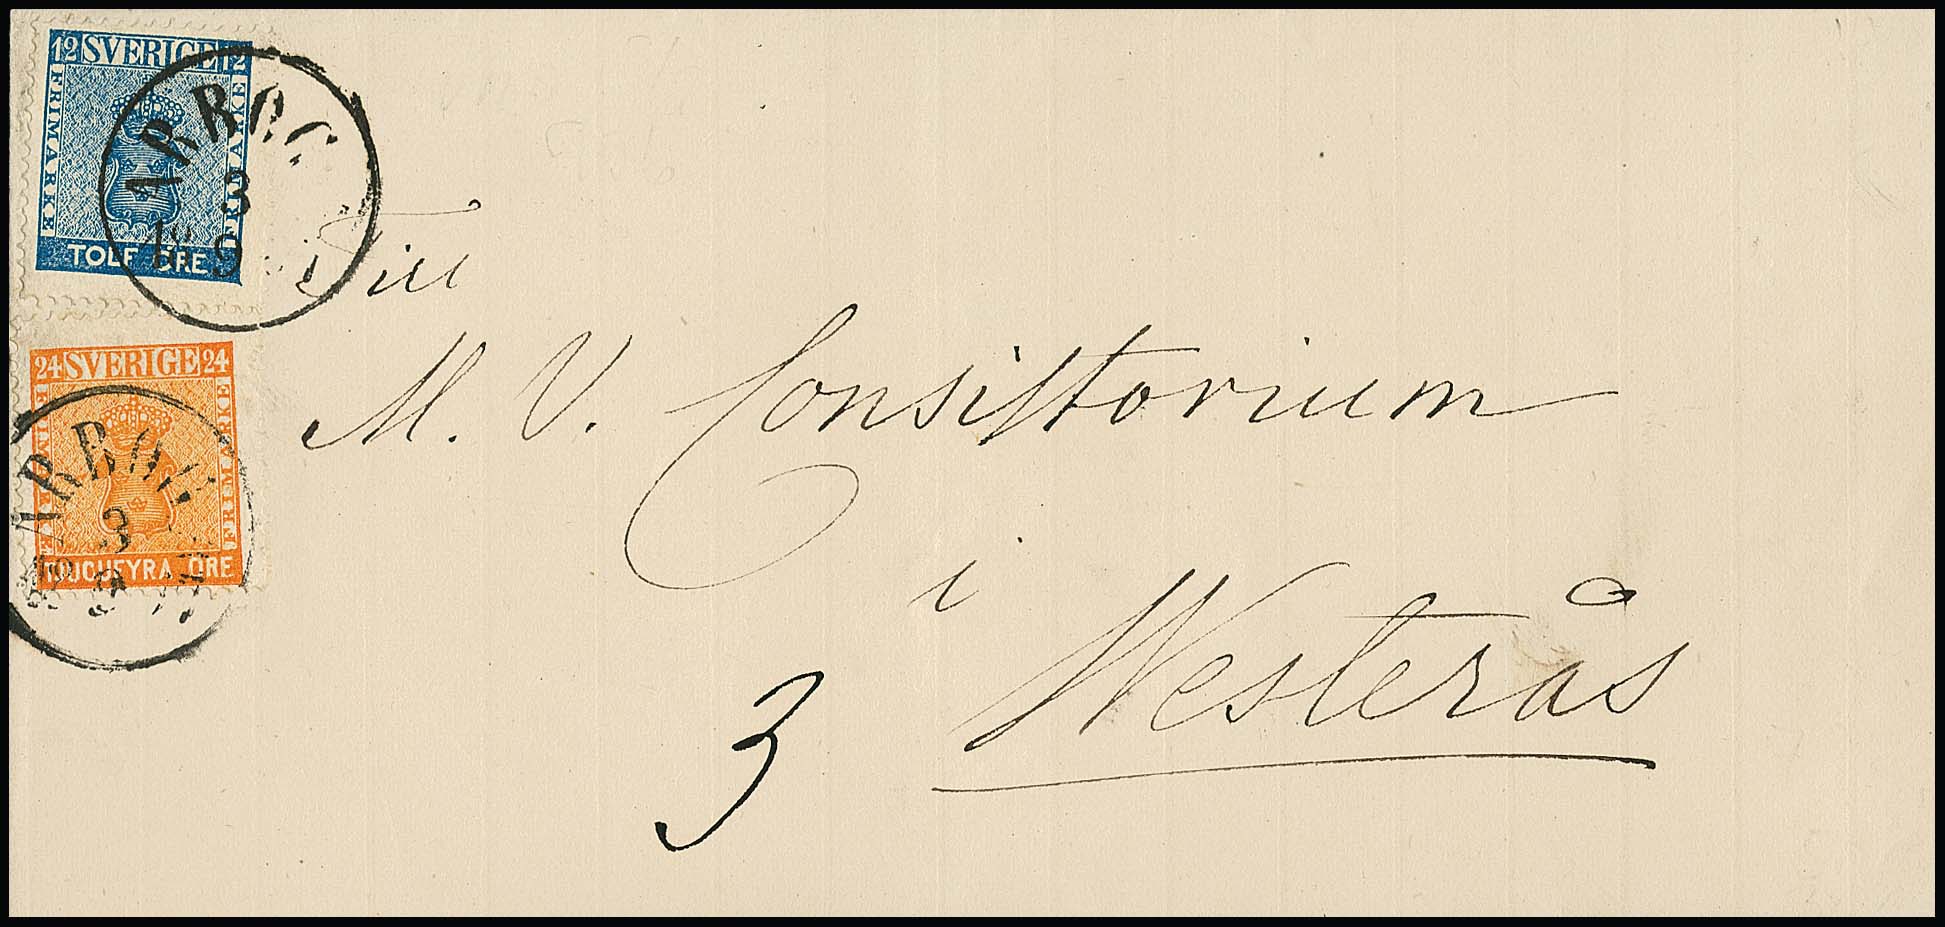 12 SVERIGE 12
FRIMARKE
FRIMARKE
TOLF ÖRE
ARBOG
3
9
24 SVERIGE 24
FRIMARKE
FRIMARKE
TJUGUFYRA ÖRE
ARBOG
3
9
Till
M. V. Consistorium
i
Westerås
3